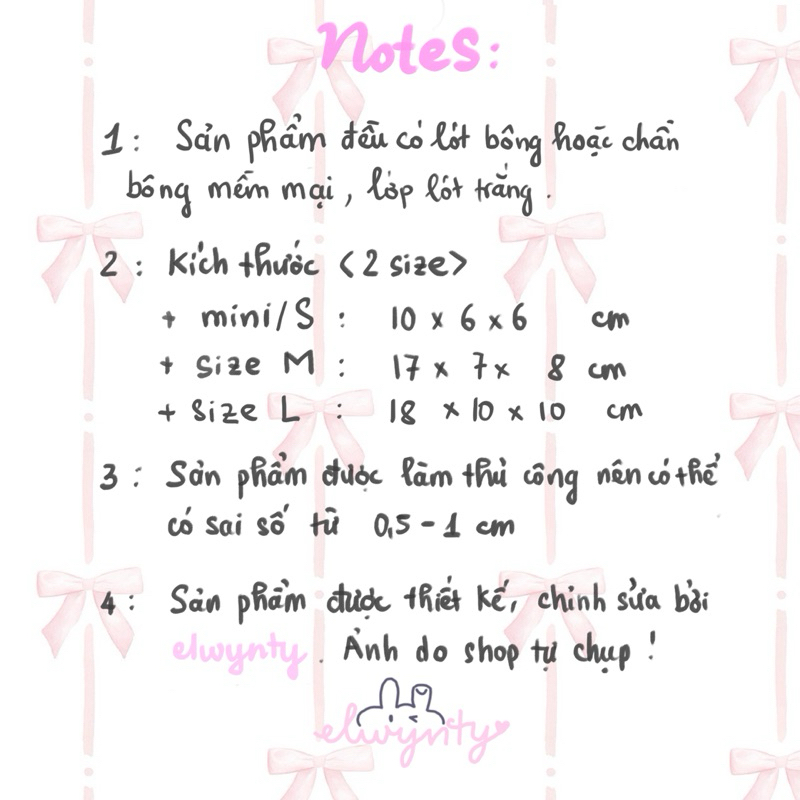 Notes:
1: Sản phẩm đều có lót bông hoặc chần
bông mềm mại, lớp lót trắng.
2: Kích thước <2 size>
+ mini/S : 10 x 6 x 6 cm
+ size M : 17 x 7 x 8 cm
+ size L : 18 x 10 x 10 cm
3: Sản phẩm được làm thủ công nên có thể
có sai số từ 0,5 - 1 cm
4: Sản phẩm được thiết kế, chỉnh sửa bởi
elwynty. Ảnh do shop tự chụp!
elwynty